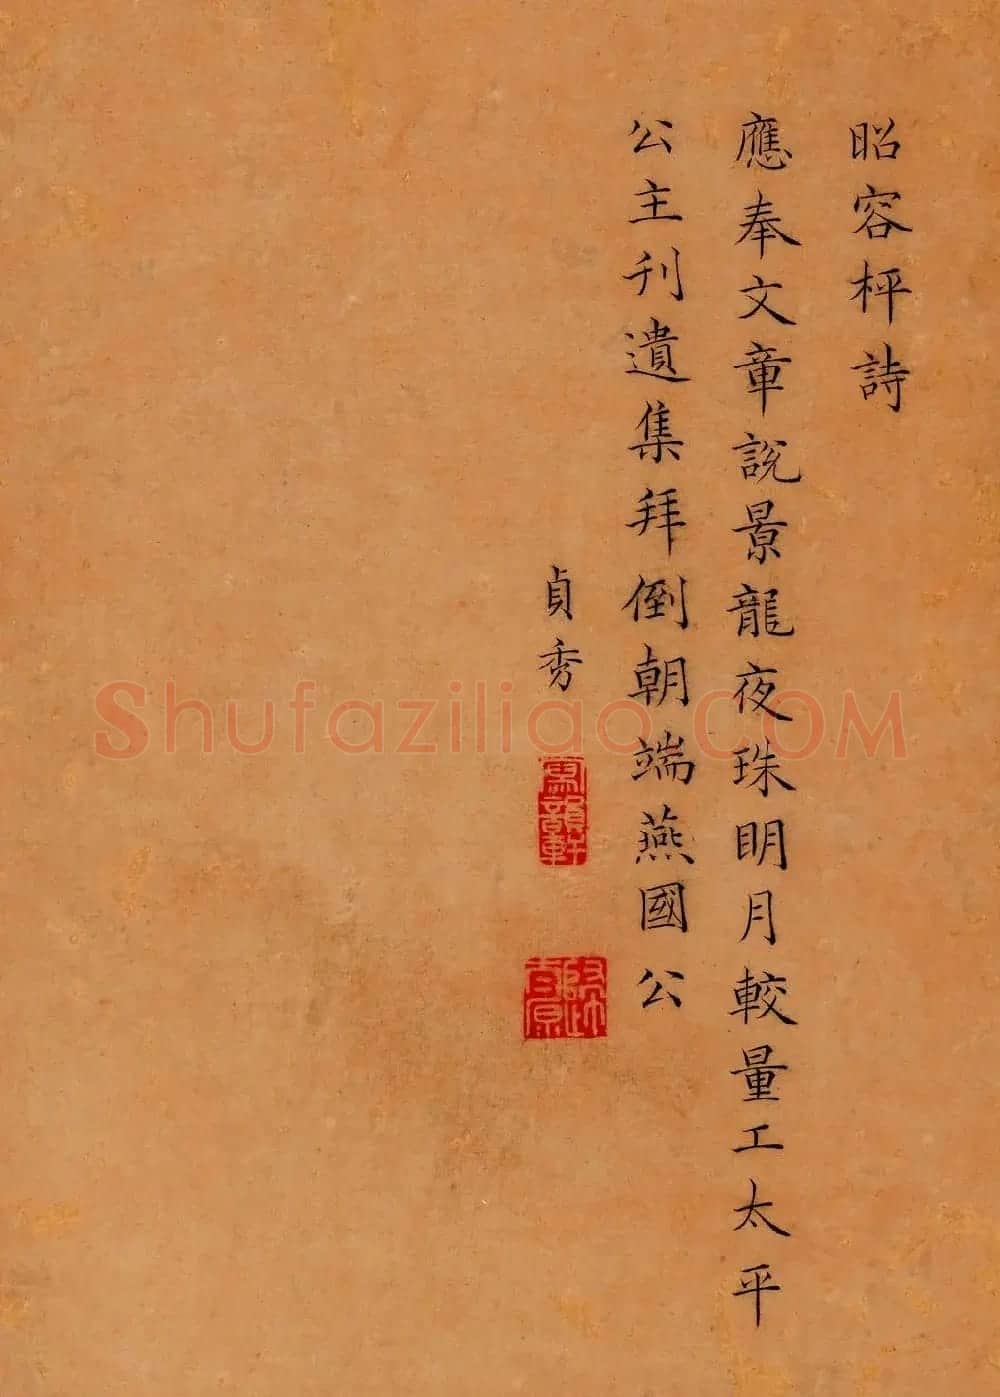 昭容枰詩
應奉文章說景龍夜珠明月較量工太平
公主刊遺集拜倒朝端燕國公
貞秀
Shufaziliao.COM